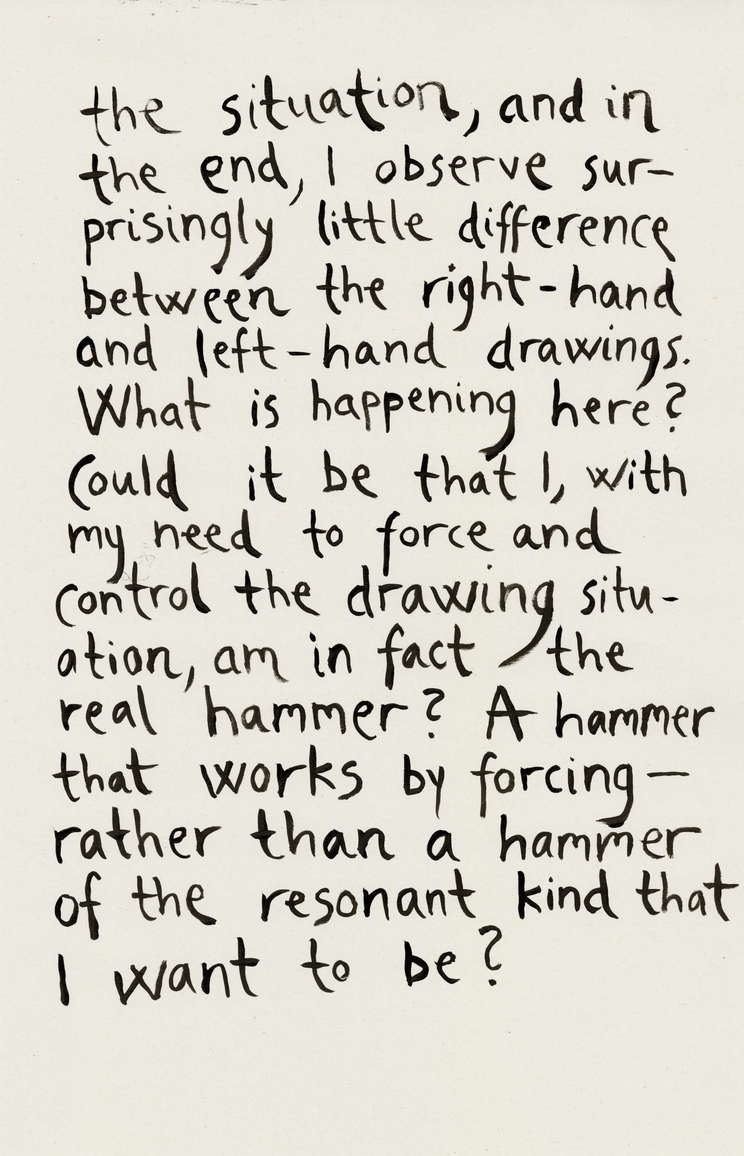 the situation, and in
the end, I observe sur-
prisingly little difference
between the right-hand
and left-hand drawings.
What is happening here?
Could it be that I, with
my need to force and
control the drawing situ-
ation, am in fact the
real hammer? A hammer
that works by forcing—
rather than a hammer
of the resonant kind that
I want to be?